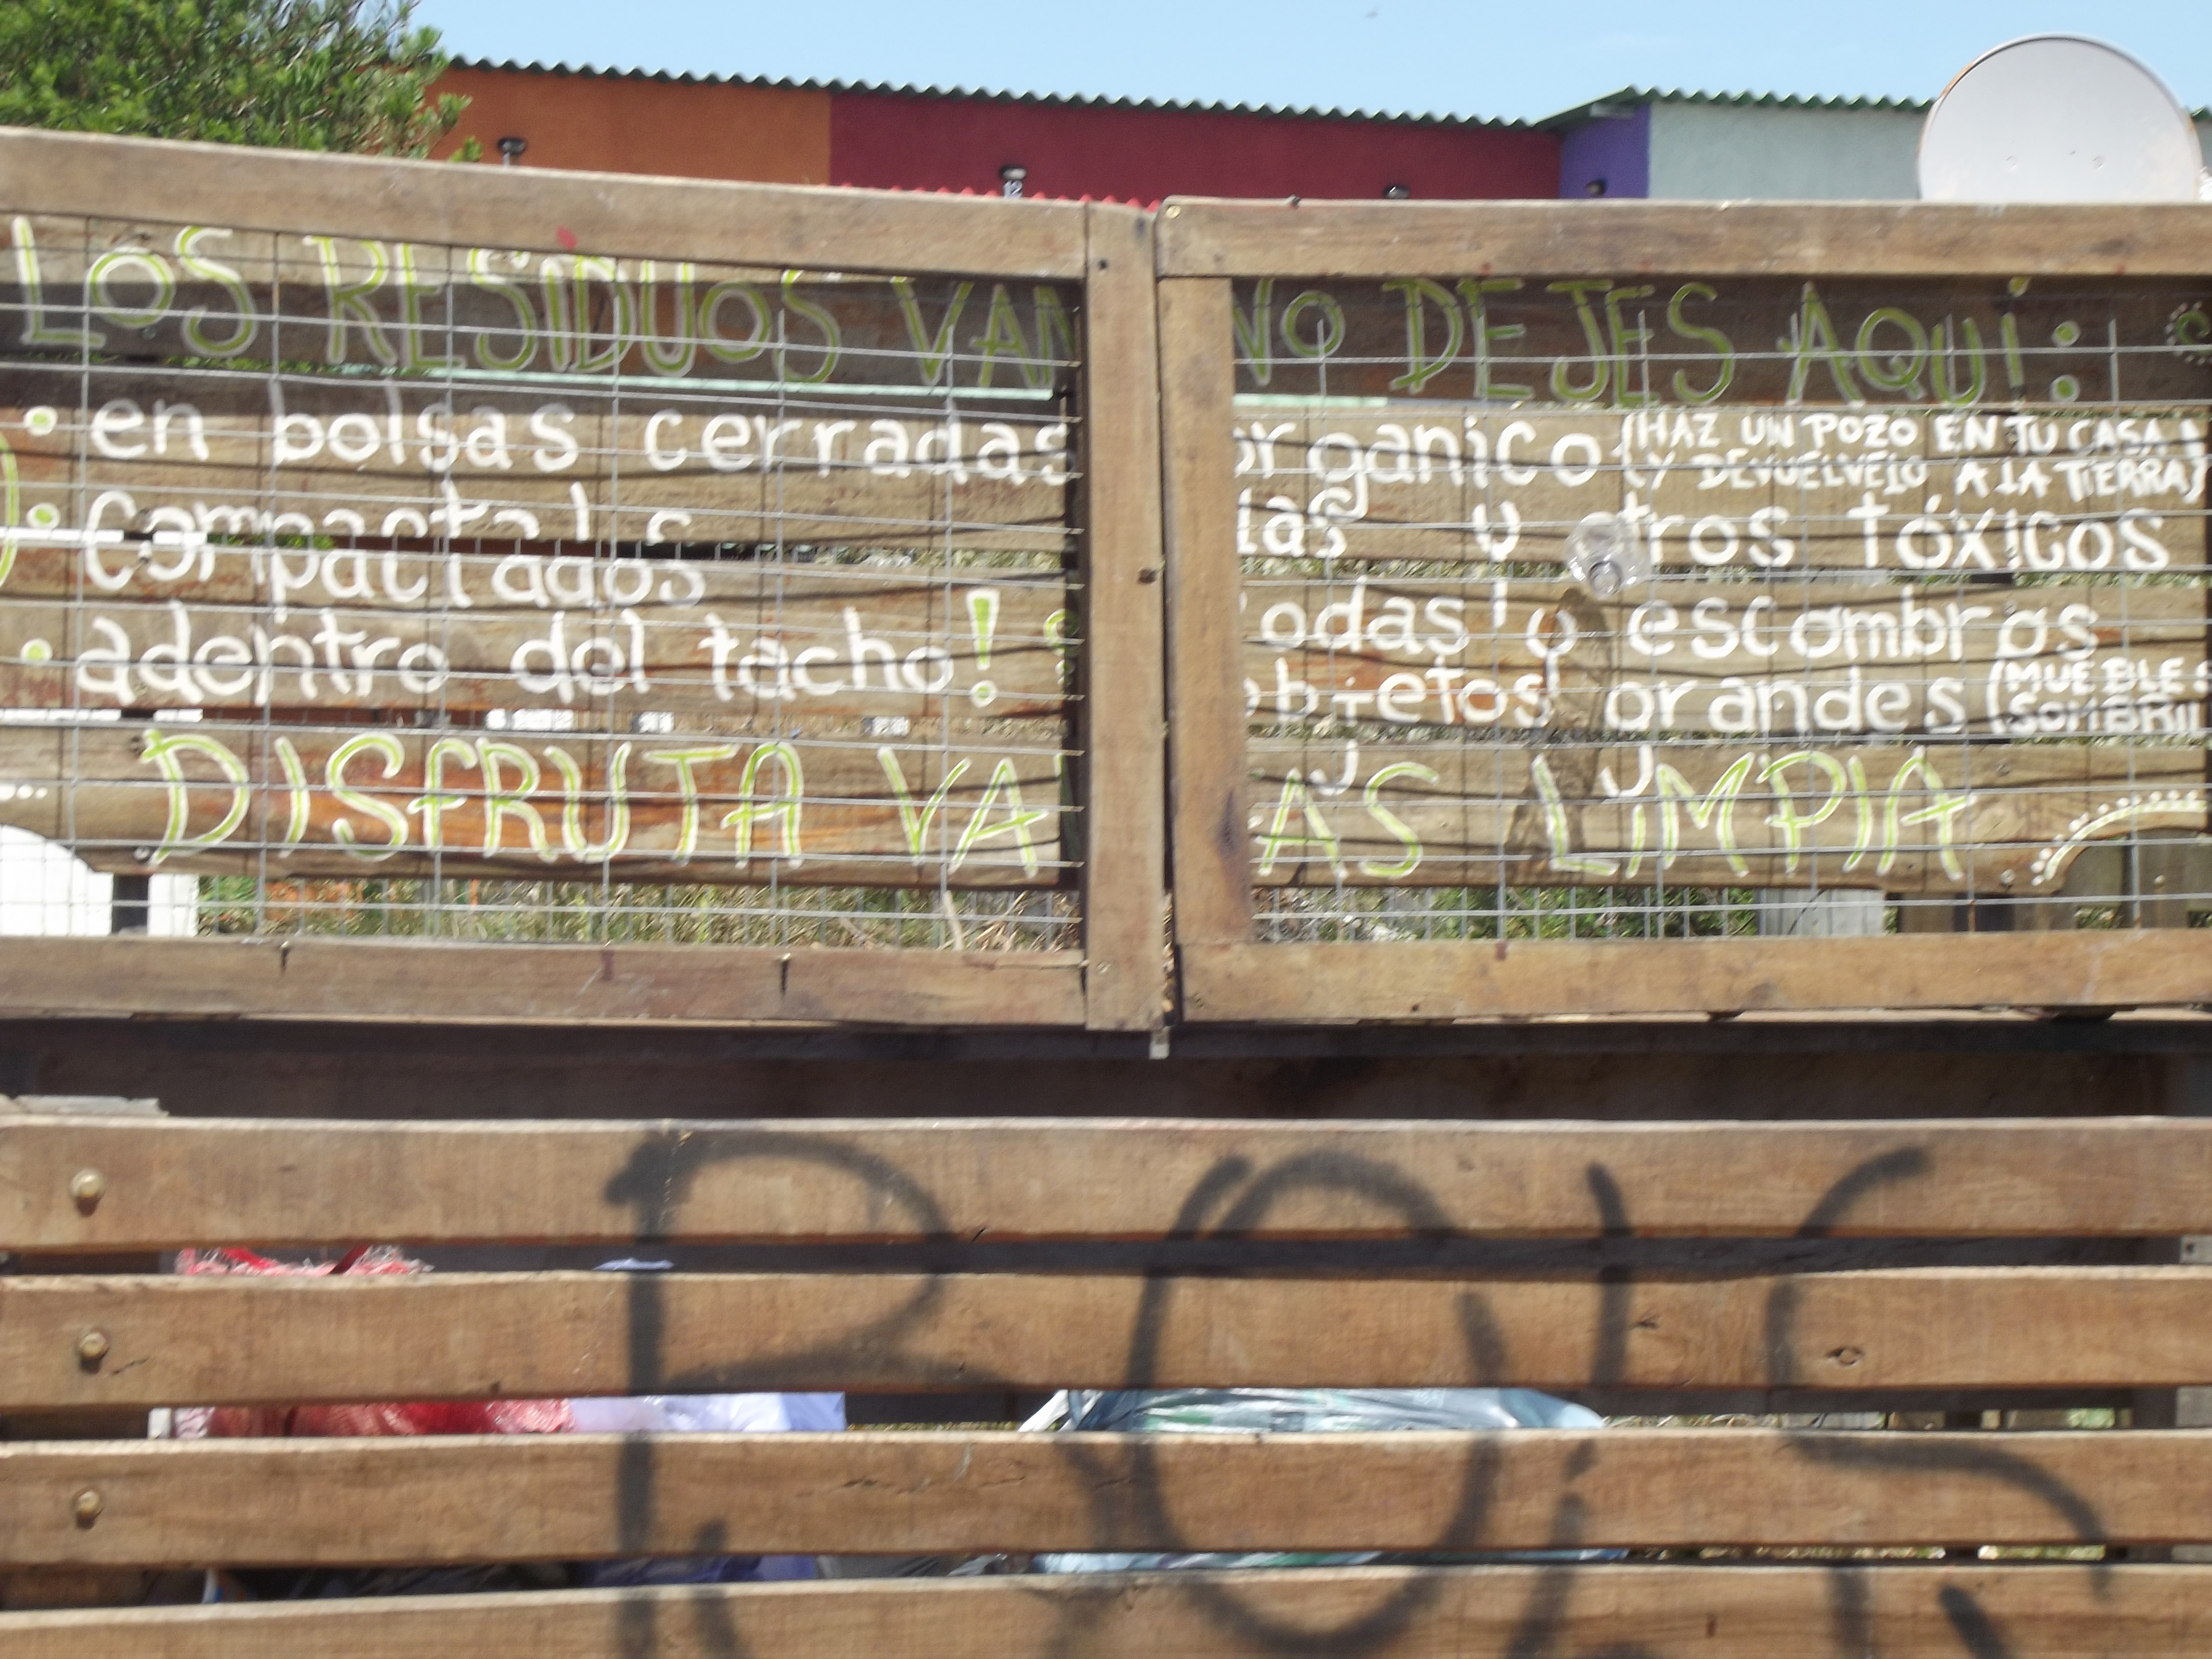 LOS RESIDUOS VAN
• en bolsas cerradas
• compactados
• adentro del tacho!
DISFRUTA
NO DEJES AQUÍ:
organico (HAZ UN POZO EN TU CASA)
(Y DEVUELVELO A LA TIERRA)
y otros tóxicos
y escombros
objetos grandes (MUEBLES
LIMPIA